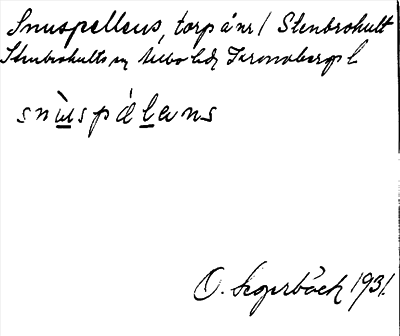 Snuspelleus, torp å nr 1 Stenbrohult
Stenbrohults sn Allbo hd Kronobergs l
snùspáləns
O. Segerbäck 1931.